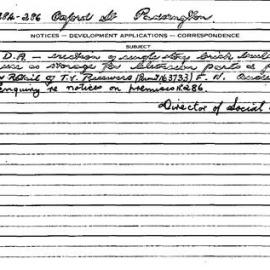 284-286 Oxford St Paddington
NOTICES — DEVELOPMENT APPLICATIONS — CORRESPONDENCE
SUBJECT
D.A - erection of single story brick
as storage for television parts &
Retail of T.V. Receivers F. N.
enquiry re notices on premises 286.
Director of Social